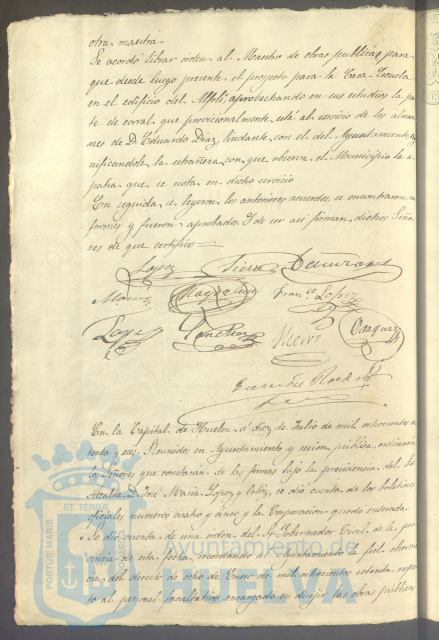 otra maestra
Se acordó librar orden al Maestro de obras publicas para
que desde luego presente el proyecto para la Casa-Escuela
en el edificio del Alfolí, aprovechando en sus estudios la par
te de corral que provicionalmente está al servicio de los alma
nes de D. Eduardo Diaz, lindante con el del Ayuntamiento, sig
nificandole la estrañeza con que observa el Municipio la a
patia que se nota en dicho servicio
En seguida se leyeron los anteriores acuerdos, se encontraron con
formes y fueron aprobados. Y de ser asi firman dichos Seño
res de que certifico
Lopez
Franco Lopez
Lopez Sanchez Vazquez
En la Capital de Huelva á diez de Julio de mil ochocientos se
tenta y seis. Reunidos en Ayuntamiento y sesion publica ordinaria
los Señores que constarán de las firmas bajo la presidencia del Sr
Alcalde D. José Maria Lopez y Ortiz, se dió cuenta de los boletines
oficiales numeros cuatro y cinco y la Corporacion quedó enterada
Se dió cuenta de una orden del Sr Gobernador Civil de la pro
vincia de esta fecha, recordando al Ayuntamiento la fiel observan
cia del decreto de ocho de Enero de mil ochocientos setenta respec
to al personal facultativo encargado en dirijir las obras publicas
PORTUS MARIS ET TERRE
Ayuntamiento de
HUELVA